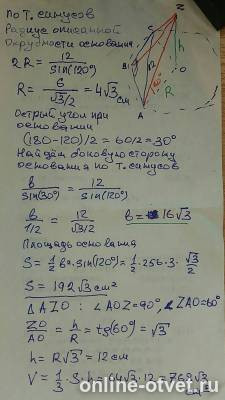 По Т. синусов
Радиус описанной
Окружности основания
2R = 12 / sin(120°)
R = 6 / √3/2 = 4√3 см
Острый угол при
основании
(180-120)/2 = 60/2 = 30°
Найдём боковую сторону
основания по т. синусов
b / sin(30°) = 12 / sin(120°)
b / 1/2 = 12 / √3/2 b = 16√3
Площадь основания
S = 1/2 b²·sin(120°) = 1/2·256·3·√3/2
S = 192√3 см²
Δ AZO : ∠AOZ = 90°, ∠ZAO = 60°
ZO / AO = h / R = tg(60°) = √3
h = R√3 = 12 см
V = 1/3·S·h = 64√3·12 = 768√3
Z
C
B
A
O
h
R
R
online-otvet.ru